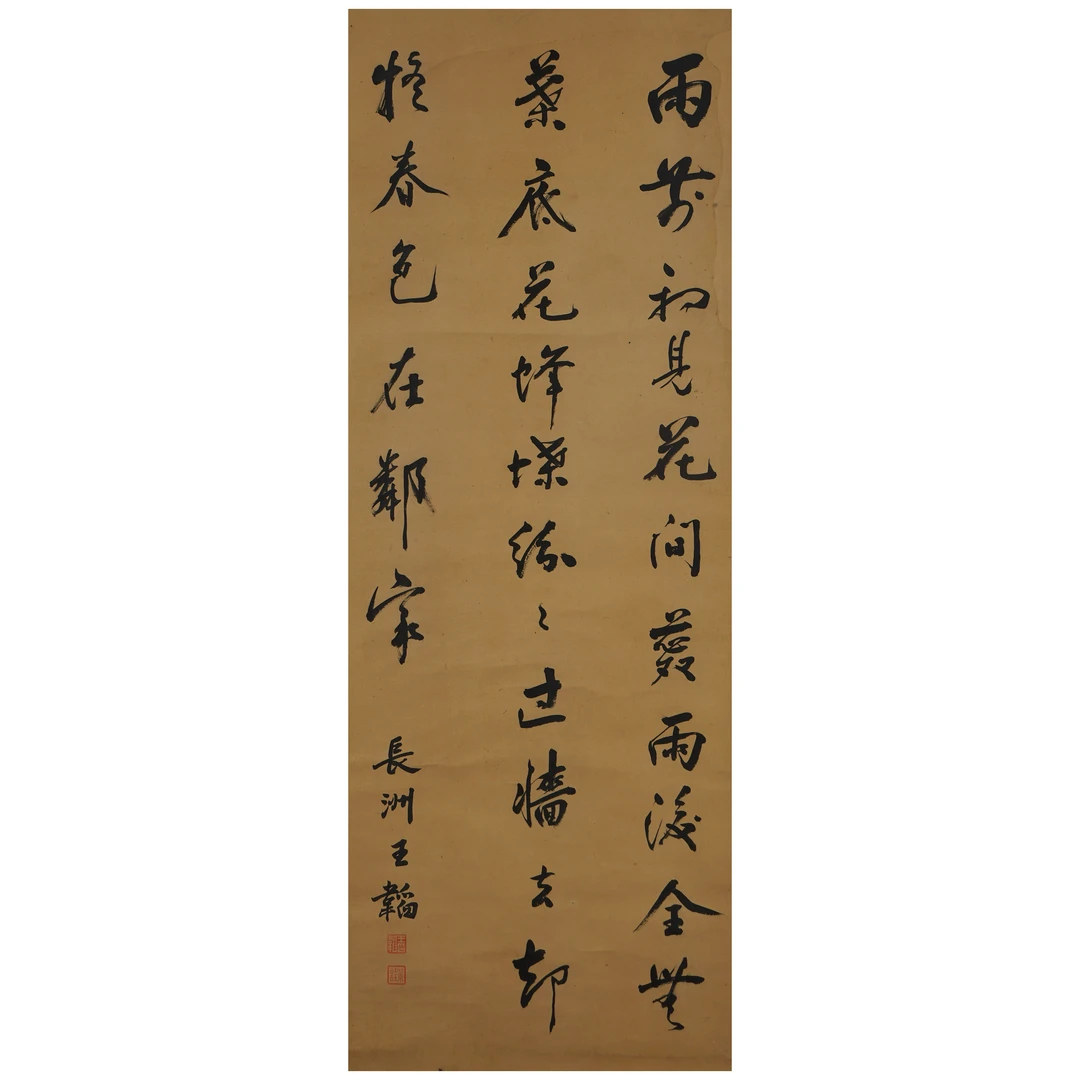 雨前初見花間蕊雨後全無
葉底花蜂蝶紛〻過牆去却
疑春色在鄰家
長洲王韜